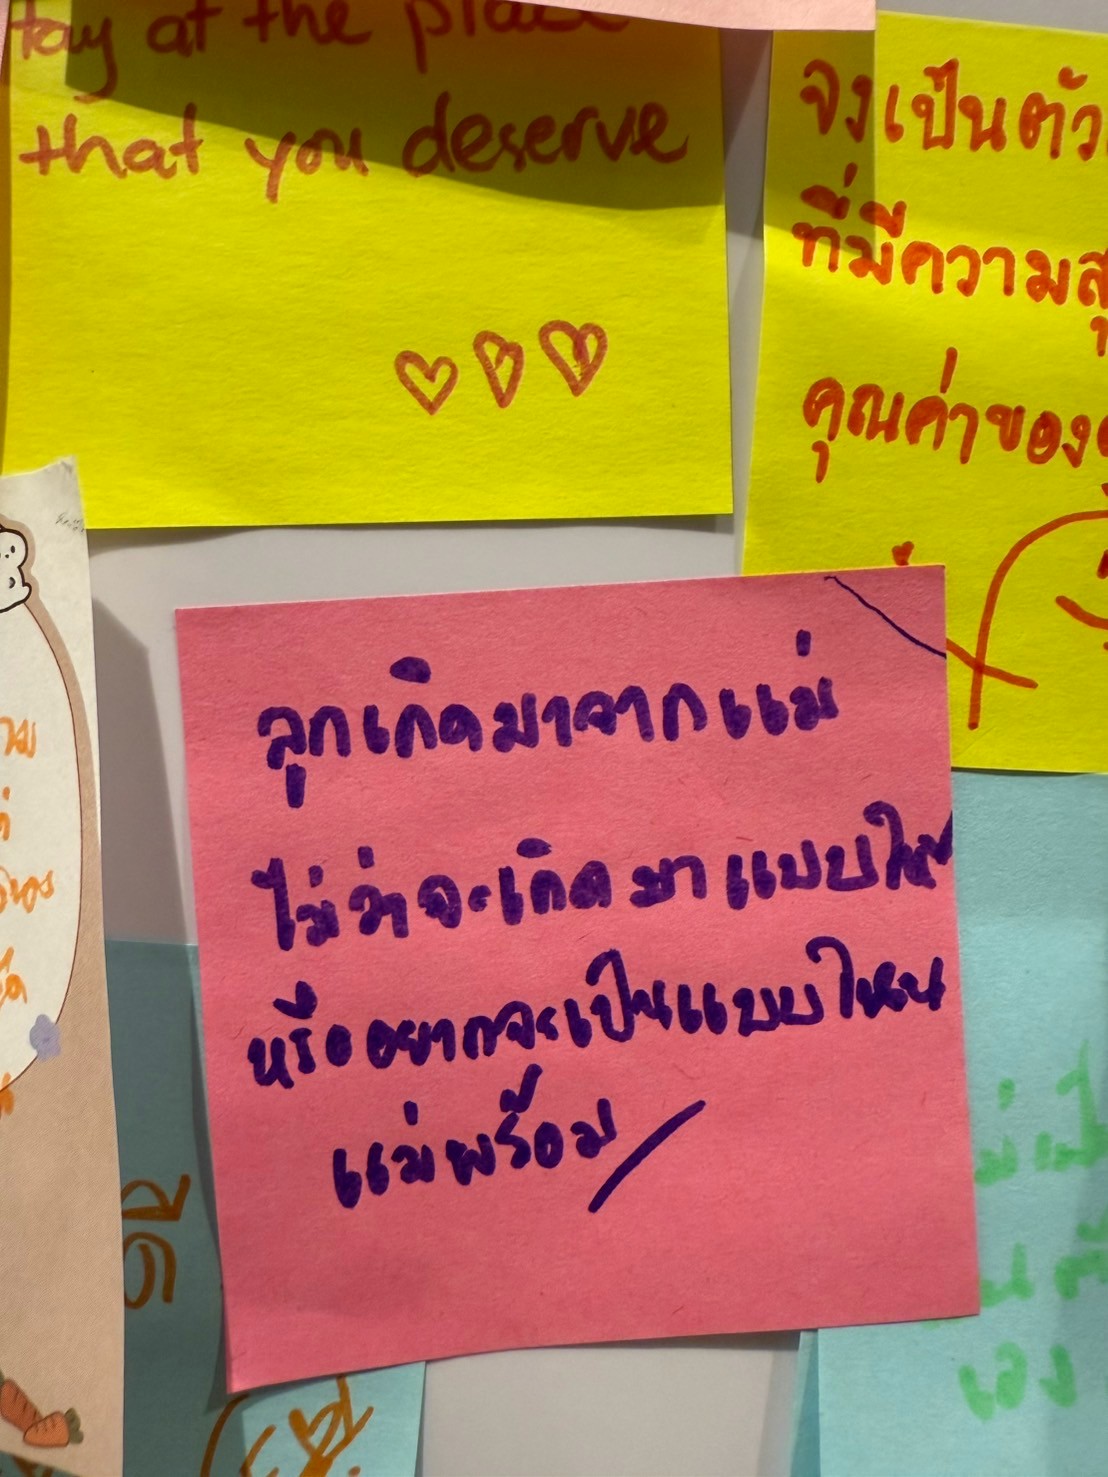 tay at the place
that you deserve
จงเป็นตัว
ที่มีความสุ
คุณค่าของ
ลูกเกิดมาจากแม่
ไม่ว่าจะเกิดมาแบบไหน
หรืออยากจะเป็นแบบไหน
แม่พร้อม
ดี
เอง